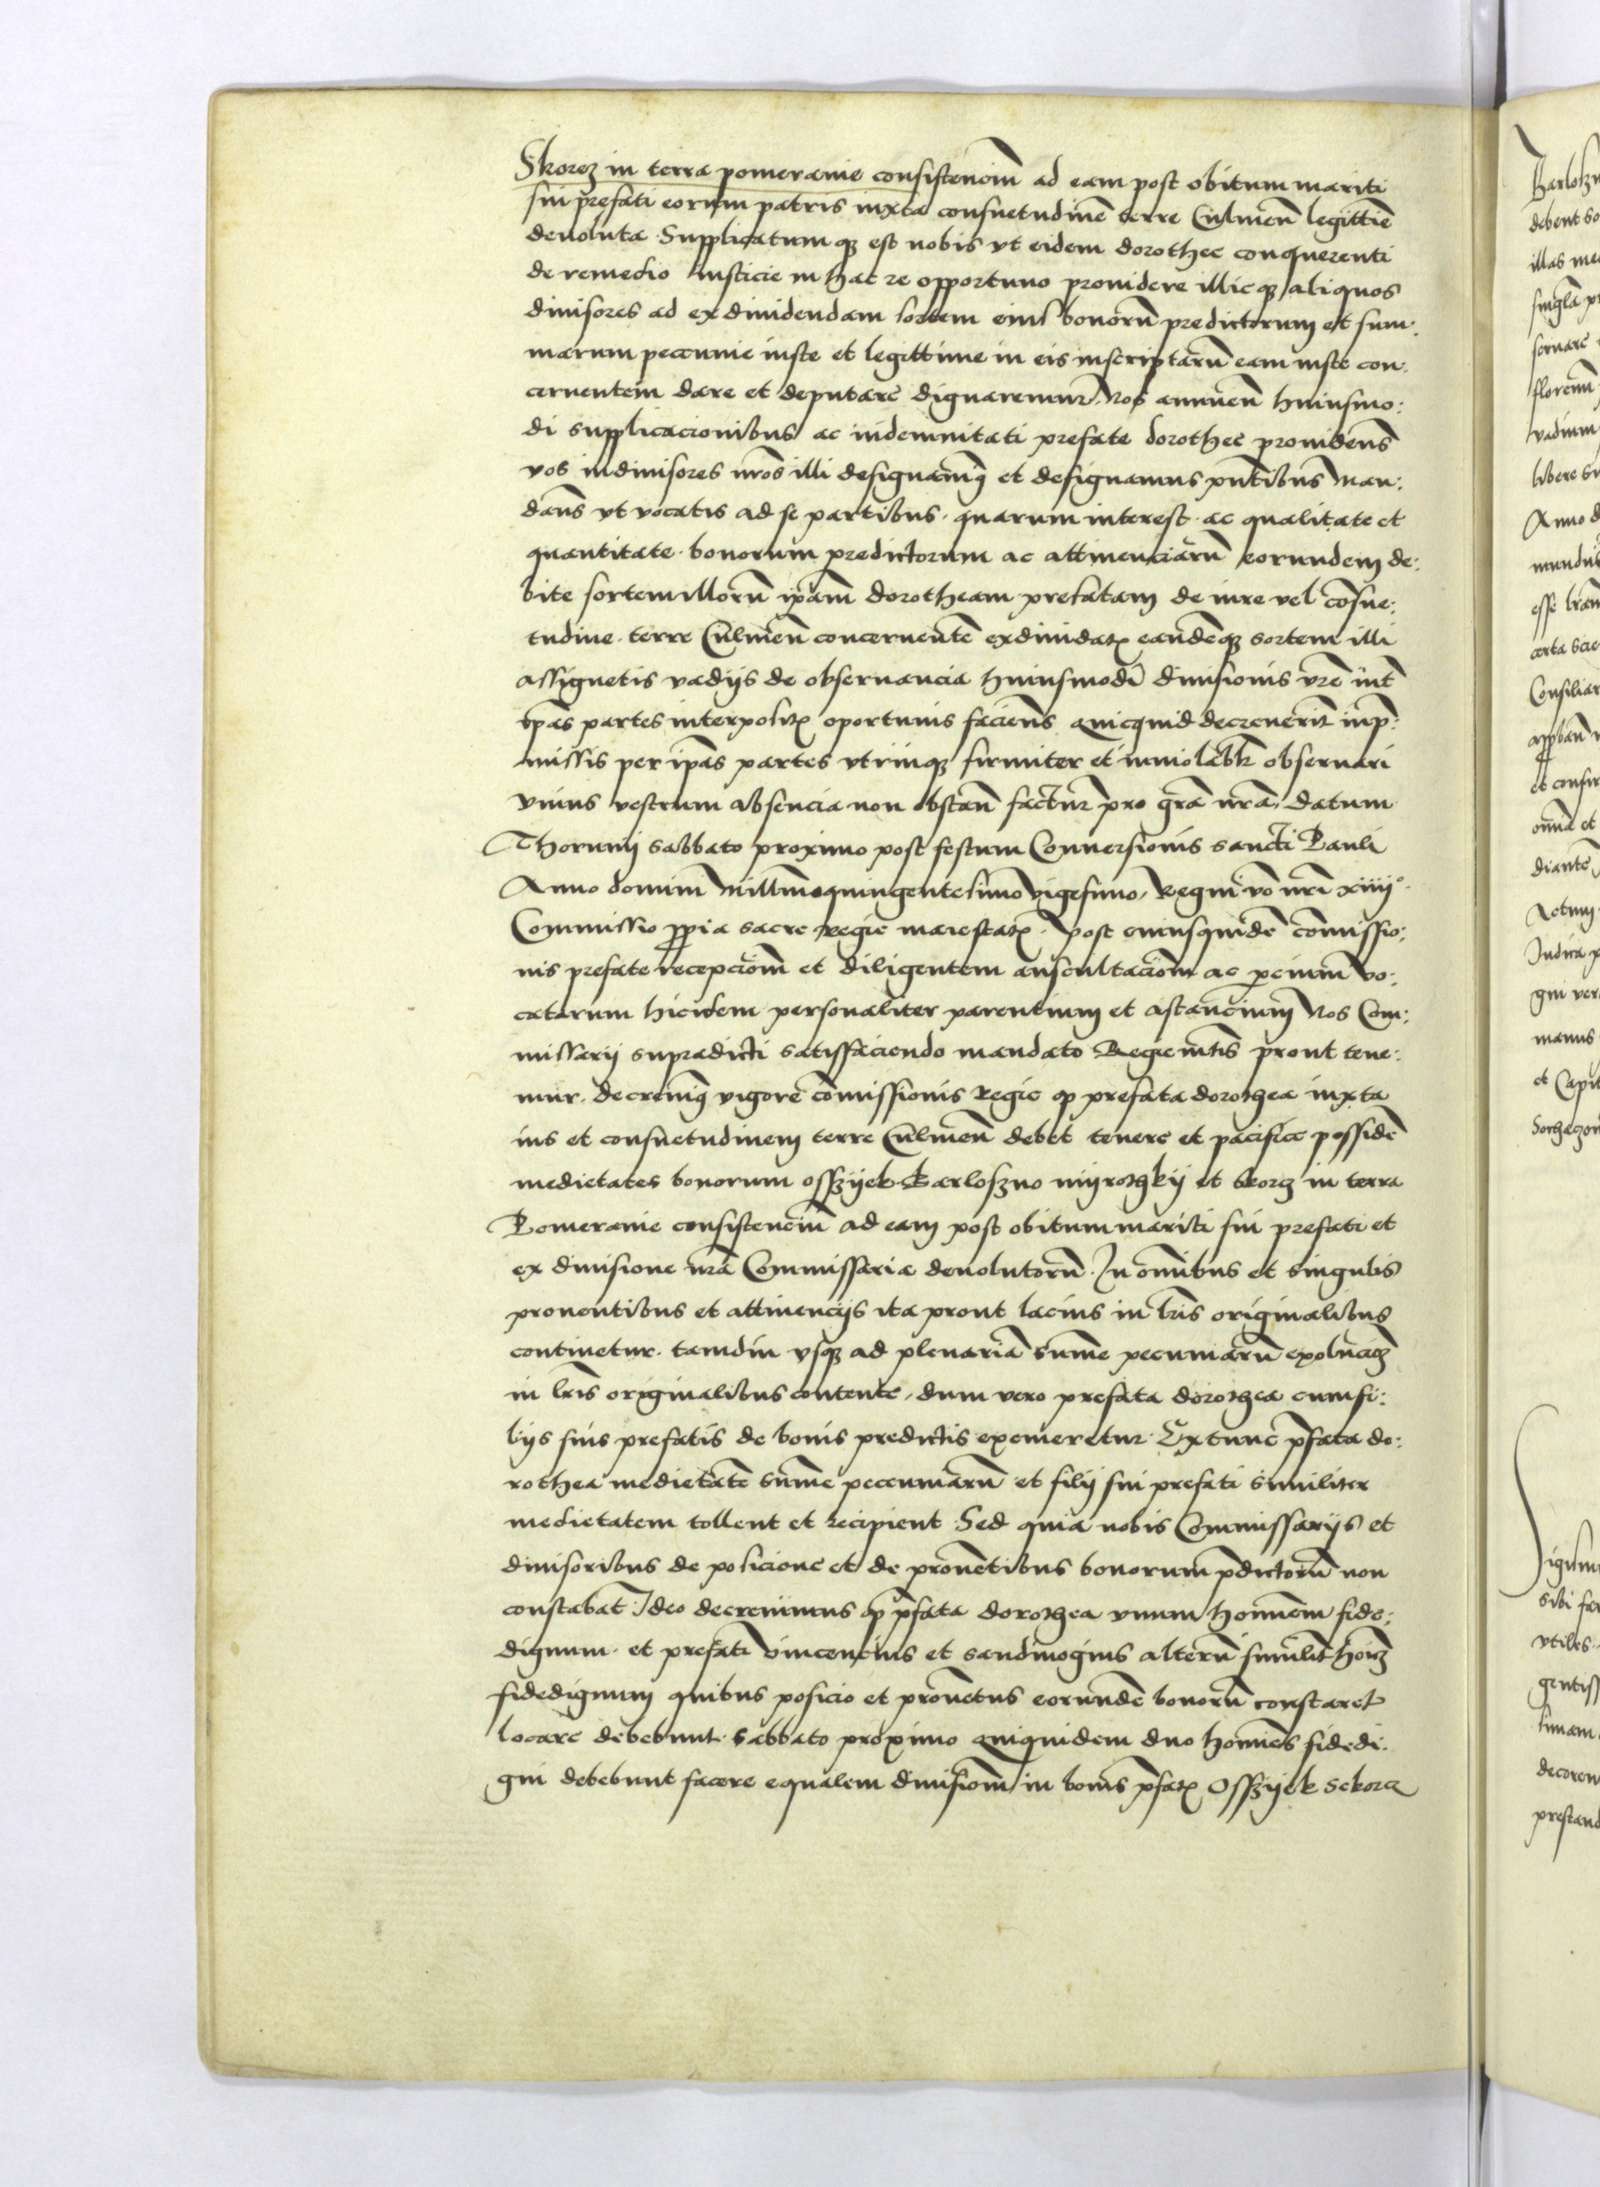 Skorcz in terra pomeranie consistencium ad eam post obitum mariti
sui prefati eorum patris iuxta consuetudinē terre Culmen̄ legittīe
deuoluta Supplicatumqȝ est nobis vt eidem dorothee conquerenti
de remedio Iusticie in hac re opportuno prouidere illicqȝ aliquos
diuisores ad ex diuidendam sortem eius bonorū predictorum et sum:
marum peccunie iuste et legittime in eis inscriptarū eam iuste con:
cernentem dare et deputare dignaremur, Nos annuen̄ huiusmo:
di supplicacionibus ac indemnitati prefate dorothee prouidens̄
vos in diuisores nr̄os illi designauimꝰ et designamus pn̄tibus Man:
dans̄ vt vocatis ad se partibus quarum interest ac qualitate et
quantitate bonorum predictorum ac attinenciarū eorundem de:
bite sortem illorū ip̄am dorotheam prefatam de iure vel cōsue:
tudine terre Culmen̄ concernentē exdiuidatꝭ eandēqȝ sortem illi
assignetis vadijs de obseruancia huiusmodi diuisionis vrē int̄
ip̄as partes interpositꝭ oportunis faciens̄ quicquid decreuerit̄ in p̄:
missis per ip̄as partes vtrinqȝ firmiter et inuiolabl̄r obseruari
vnius vestrum absencia non obstan̄ factur̄ pro grā nrā, datum
Thorunij sabbato proximo post festum Conuersionis sancti Pauli
Anno domini Millmo quingentesimo vigesimo, Regni vō nrī xiiij°
Commissio ꝓpria sacre Regie maiestatꝭ. Post cuiusquidē cōmissio:
nis prefate recepcionē et diligentem auscultacionē ac parcium vo:
catarum hicidem personaliter parentium et astancium Nos Com:
missarij supradicti satisfaciendo mandato Regie mtis̄ prout tene:
mur. decreuimꝰ vigore cōmissionis Regie qꝫ prefata dorothea iuxta
ius et consuetudinem terre Culmen̄ debet tenere et pacifice possidē
medietates bonorum Ossȝyek Barloszno myrotzkij et Skorcz in terra
Pomeranie consistenciū ad eam post obitum mariti sui prefati et
ex diuisione nrā Commissaria deuolutorū. In omībus et singulis
prouentibus et attinencijs ita prout lacius in lrīs originalibus
continetur. tamdiu vsqȝ ad plenariā sūme pecuniarū exoluciōȝ
in lrīs originalibus contente, dum vero prefata dorothea cum fi:
lijs suis prefatis de bonis predictis exemeretur. Extunc p̄fata do:
rothea medietatē sūme peccuniarū et filij sui prefati similiter
medietatem tollent et recipient Sed quia nobis Commissarijs et
diuisoribus de posicione et de prouētibus bonorum p̄dictorū non
constabat Ideo decreuimus qꝫ p̄fata dorothea vnum homīnem fide:
dignum et prefati Vincencius et Sandiuogius alterū similit̄ hoīeȝ
fidedignum quibus posicio et prouētus eorundē bonorū constaret
locare debebunt sabbato proximo quiquidem duo homīes fidedi:
gni debebunt facere equalem diuisionē in bonis p̄fatꝭ Ossȝyek Sckorcz